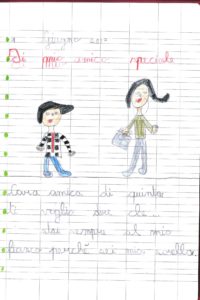 Giugno
Di mio amico speciale
Cara amica di quinta
ti voglio dire che...
stai sempre al mio
fianco perchè sei mia